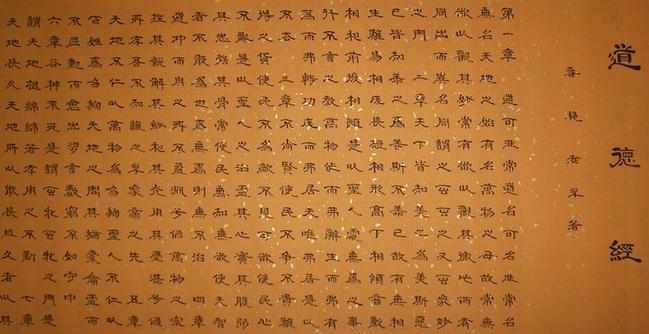 道德經
第一章 道可道非常道名可名非常名
無名天地之始有名萬物之母故常無
欲以觀其妙常有欲以觀其徼此兩者
同出而異名同謂之玄玄之又玄衆妙
之門 二章 天下皆知美之為美斯惡
已皆知善之為善斯不善已故有無相
生難易相成長短相形高下相傾音聲
相和前後相隨是以聖人處無為之事
行不言之教萬物作而弗辭生而不有
為而弗恃功成而弗居夫唯弗居是以
不去 三章 不尚賢使民不爭不貴難
得之貨使民不為盜不見可欲使民心
不亂是以聖人之治虛其心實其腹弱
其志強其骨常使民無知無欲使夫智
者不敢為也為無為則無不治 四章
道沖而用之或不盈淵兮似萬物之宗
挫其銳解其紛和其光同其塵湛兮似或
存吾不知誰之子象帝之先 五章
天地不仁以萬物為芻狗聖人不仁以
百姓為芻狗天地之間其猶橐籥乎虛而
不屈動而愈出多言數窮不如守中
六章 谷神不死是謂玄牝玄牝之門是
謂天地根綿綿若存用之不勤 七章
天地長久天地所以能長且久者以其